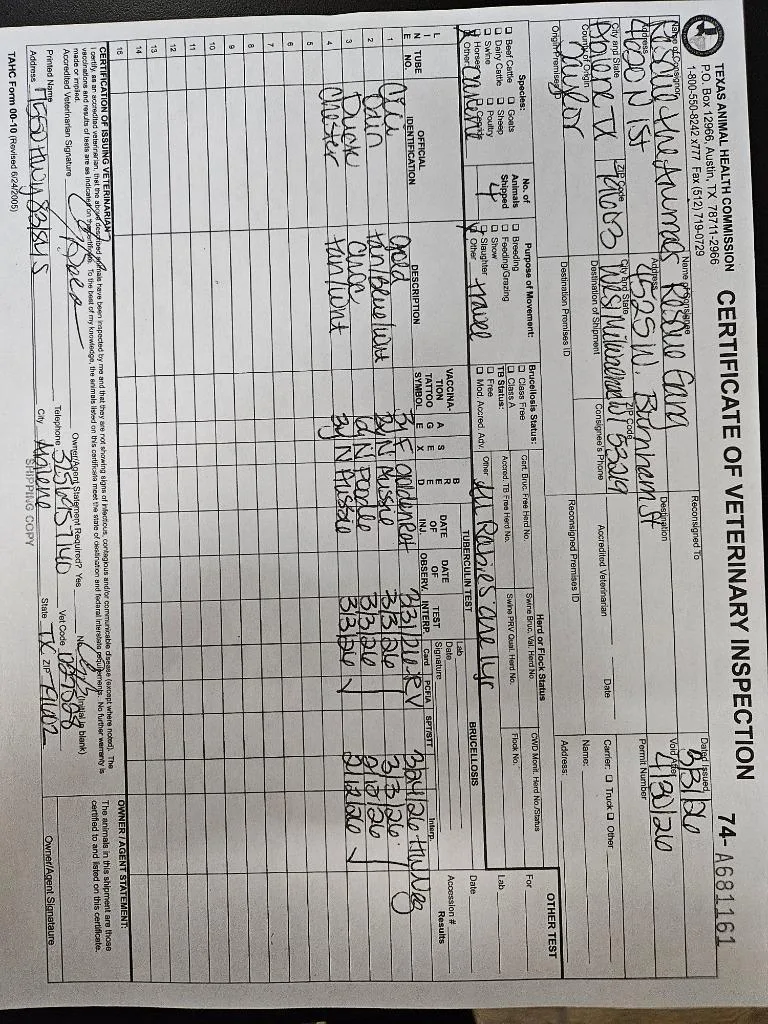 TEXAS ANIMAL HEALTH COMMISSION
P.O. Box 12966, Austin, TX 78711-2966
1-800-550-8242 x777 Fax (512) 719-0729
CERTIFICATE OF VETERINARY INSPECTION
74- A681161
Name of Consignor
Rescue the Animals
Address
4620 N 1st
City and State
Abilene TX
ZIP code
79603
County of Origin
Taylor
Origin Premises ID
Name of Consignee
Rescue Gang
Address
4525 W. Burnham St
City and State
West Milwaukee WI
ZIP Code
53219
Destination of Shipment
Consignee's Phone
Destination Premises ID
Reconsigned To
Destination
Accredited Veterinarian
Date
Reconsigned Premises ID
Dated Issued
3/31/26
Void After
4/30/26
Permit Number
Carrier: Truck Other
Name:
Address:
Species:
Beef Cattle Goats
Dairy Cattle Sheep
Swine Poultry
Horses Cervids
Other canine
No. of Animals Shipped
4
Purpose of Movement:
Breeding
Feeding/Grazing
Show
Slaughter
Other travel
Brucellosis Status:
Class Free
Class A
TB Status:
Free
Mod. Accred. Adv.
Cert. Bruc. Free Herd No.
Accred. TB Free Herd No.
Other All Rabies are 1yr
Herd or Flock Status
Swine Bruc. Val. Herd No.
Swine PRV Qual. Herd No.
CWD Monit. Herd No./Status
Flock No.
OTHER TEST
For
Lab
Date
LINE TUBE NO. OFFICIAL IDENTIFICATION DESCRIPTION VACCINATION TATTOO SYMBOL AGE SEX BREED
TUBERCULIN TEST
DATE OF INJ. DATE OF OBSERV. TEST INTERP.
BRUCELLOSIS
Lab
Date
Signature
Card PCFIA SPT/STT Interp.
Accession #
Results
1 gold 3y F golden Ret 3/31/26 RV 3/24/26 HW Neg
2 tan/blue/wht 2y N Aussie 3/3/26 3/3/26
3 Duck N Poodle 3/3/26
4 Chester tan/wht 3y N Aussie 3/3/26 2/12/26
5
6
7
8
9
10
11
12
13
14
15
CERTIFICATION OF ISSUING VETERINARIAN
I certify, as an accredited veterinarian, that the above described animals have been inspected by me and that they are not showing signs of infectious, contagious and/or communicable disease (except where noted). The
vaccinations and results of tests are as indicated on the certificate. To the best of my knowledge, the animals listed on this certificate meet the state of destination and federal interstate requirements. No further warranty is
made or implied.
OWNER / AGENT STATEMENT:
The animals in this shipment are those
certified to and listed on this certificate.
Owner/Agent Statement Required? Yes No (initial in blank)
Accredited Veterinarian Signature
Printed Name
Telephone 325 695 7140
Vet Code
Address
City Abilene
State TX
ZIP
Owner/Agent Signature
TAHC Form 00-10 (Revised 6/24/2005)
SHIPPING COPY